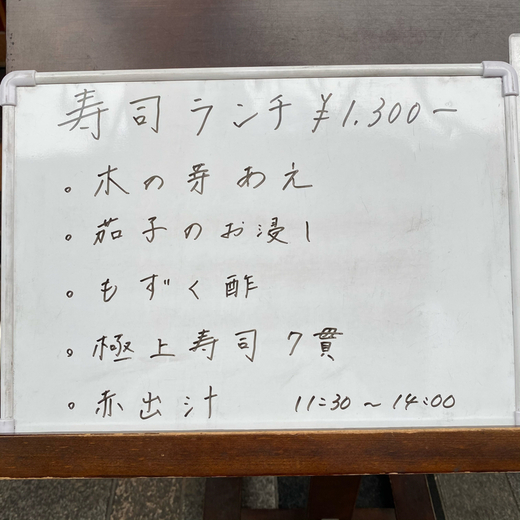 寿司ランチ ¥1.300-
。木の芽あえ
。茄子のお浸し
。もずく酢
。極上寿司 7貫
。赤出汁 11:30~14:00